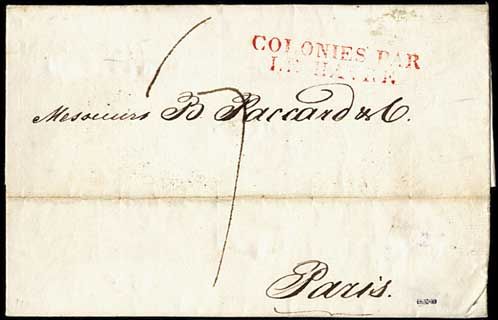 COLONIES PAR
LE HAVRE
Messieurs B Paccard & C.
Paris.